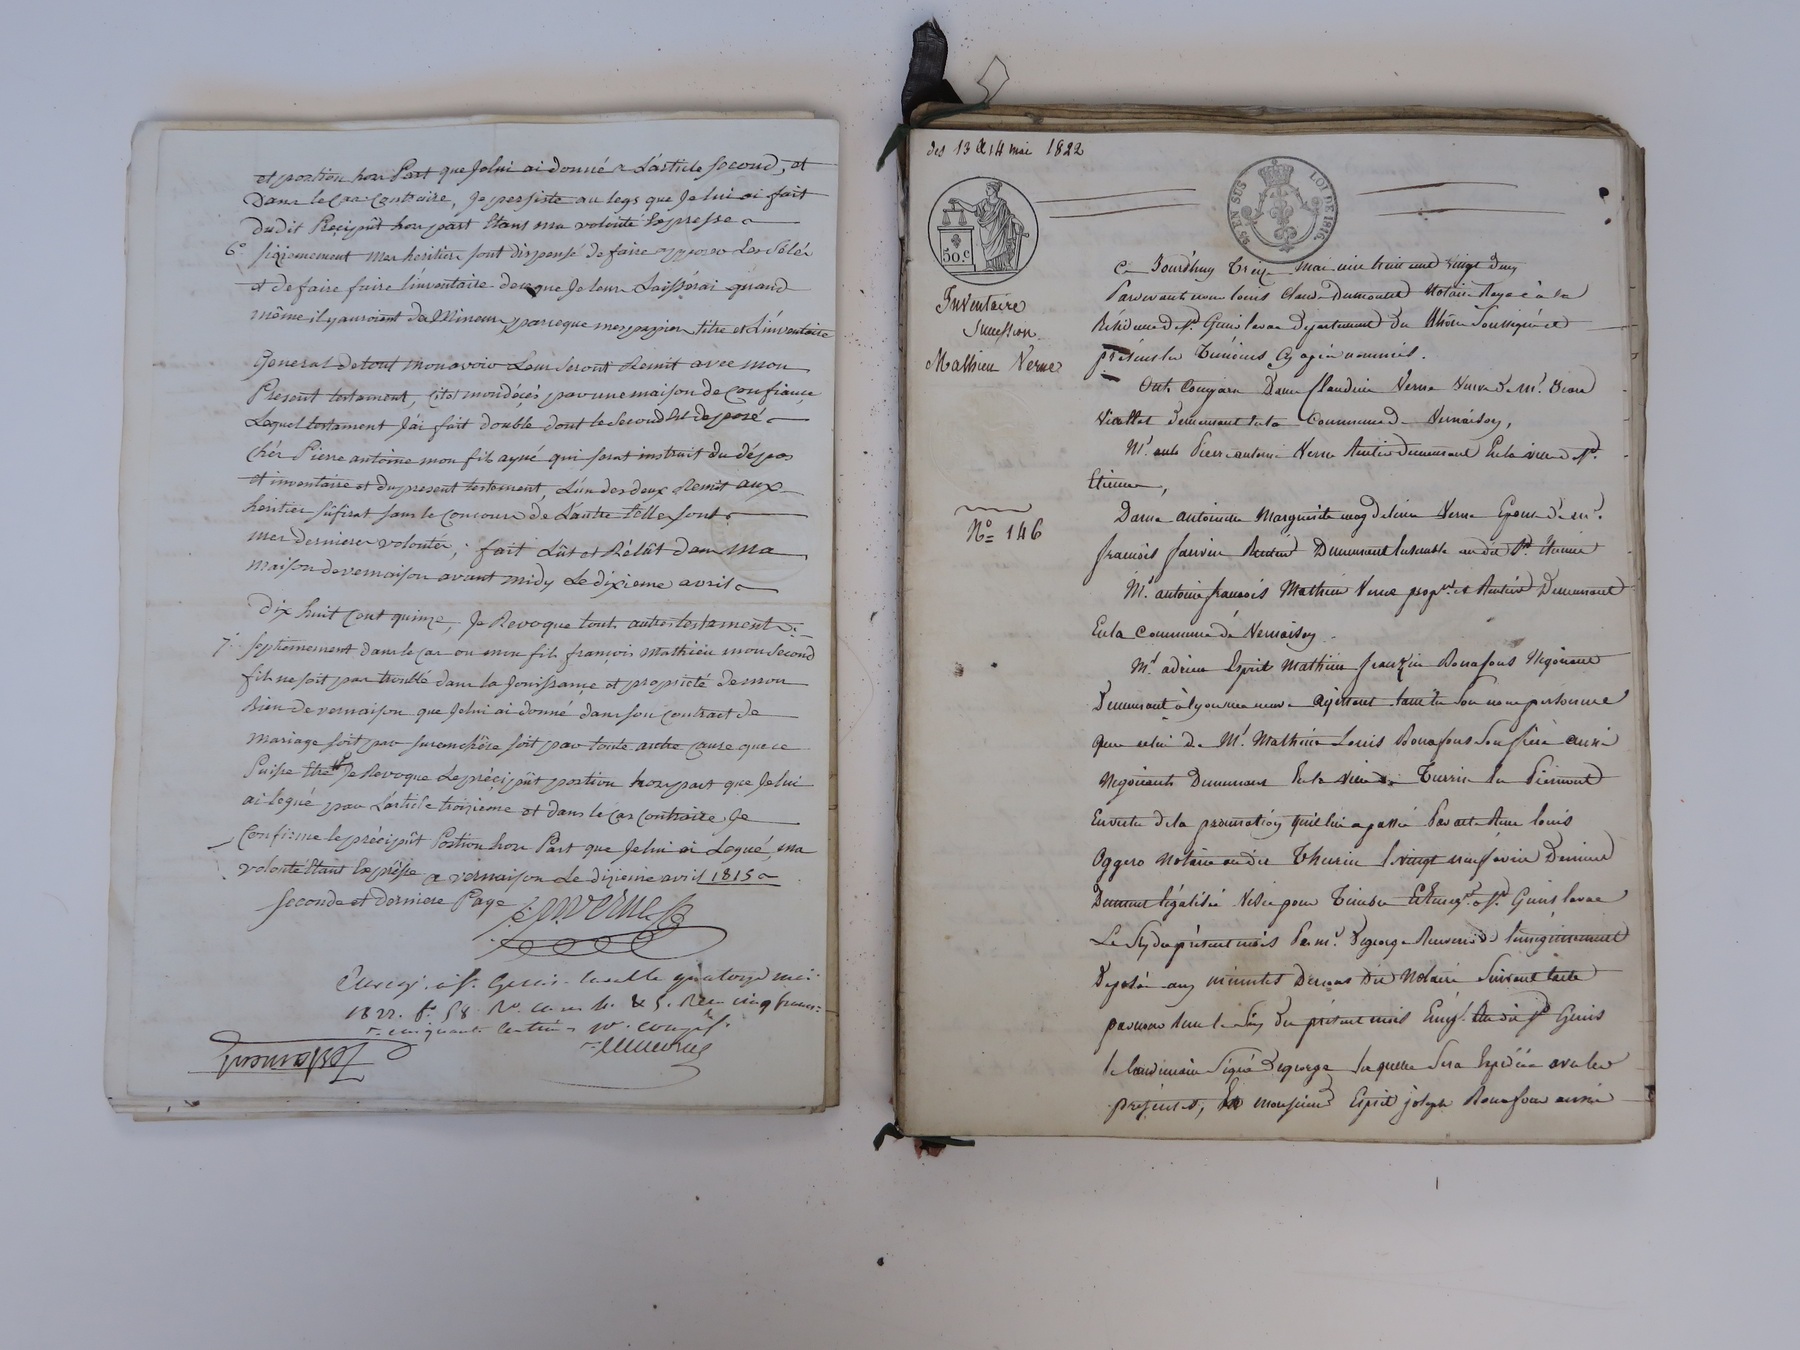 et portion hors Part que Je lui ai donné a L'article second, et
Dans le Cas Contraire, Je persiste au legs que Je lui ai fait
du dit Preçipût hors part Etant ma volonté Expresse
6° sixiemement mes heritiers sont dispensé de faire apposer Les Scélés
et de faire faire l'inventaire de ce que Je leur Laisserai quand
même il y auroient des Mineurs, parceque mes papiers titre et L'inventaire
General de tout mon avoir Leur seront Remit avec mon
Present testament, sitot mon déçés, par une maison de Confiance
Lequel testament J'ai fait double dont le Second Est deposé
Chés Pierre antoine mon fils ayné qui serat instruit du dépos
et inventaire et du present testament, L'un des deux Remit aux
heritier sufirat sans le Concours de L'autre telle sont
mes dernieres volontés, fait Lût et Rélût dans Ma
maison de vernaison avant midy Le dixieme avril
Dix huit Cent quinze, Je Revoque tout autres testament
7° septiemement dans le Cas ou mon fils françois Mathieu mon Second
fils ne soit pas troublé dans la Jouissance et propriété de mon
Bien de vernaison que Je lui ai donné dans son Contract de
Mariage soit par surenchère soit par toute autre Cause que ce
Puisse Etre Je Revoque Le préçipût portion hors part que Je lui
ai Legué par L'article troizieme et dans le Cas Contraire Je
Confirme le préçipût Portion hors Part que Je lui ai Legué, ma
volonté Etant Expresse a vernaison Le dixieme avril 1815
Seconde et Derniere Page
quatorze mai
1822. f° 58 R° cinq francs
cinquante Centimes
Testament
des 13 & 14 mai 1822
50.c
EN SUS
LOI DE 1816.
Inventaire
Succession
Mathieu Verne
N° 146
Ce Jourd'huy Treize Mai mil huit cent vingt deux
Pardevant nous louis Claude Dumontet Notaire Royal à la
Résidence de St. Genis laval Département du Rhône Soussigné et
présents les Témoins Cy après nommés.
Ont Comparu Dame Claudine Verne Veuve de Mr.
Demeurant En la Commune de Vernaison,
Mr. Pierre antoine Verne Rentier Demeurant En la ville de St.
Etienne,
Dame antoinette Marguerite magdeleine Verne Epouse de Mr.
françois Janvier Rentier Demeurant Ensemble au dit St. Etienne
Mr. antoine françois Mathieu Verne propre. et Rentier Demeurant
En la Commune de Vernaison
Mr. adrien Esprit Mathieu Bonafous Négociant
Demeurant à lyon Agissant tant En Son nom personnel
que celui de Mr. Mathieu Louis Bonafous Son frère aussi
Négociant Demeurant En la ville de Turin En Piémont
En vertu de la procuration qu'il lui a passée Par acte louis
Oggero Notaire au dit Thurin le vingt neuf Dernier
Dument légalisé Visée pour Timbre Et Enreg. à St. Genis laval
Le Six du présent mois Par Mr. Degeorge Receveur de l'enregistrement
Déposée aux minutes De nous Dit Notaire Suivant l'acte
du présent mois Enreg. au dit St. Genis
le lendemain Signé Degeorge laquelle Sera Expédiée avec les
présentes, Monsieur Esprit joseph Bonafous aussi